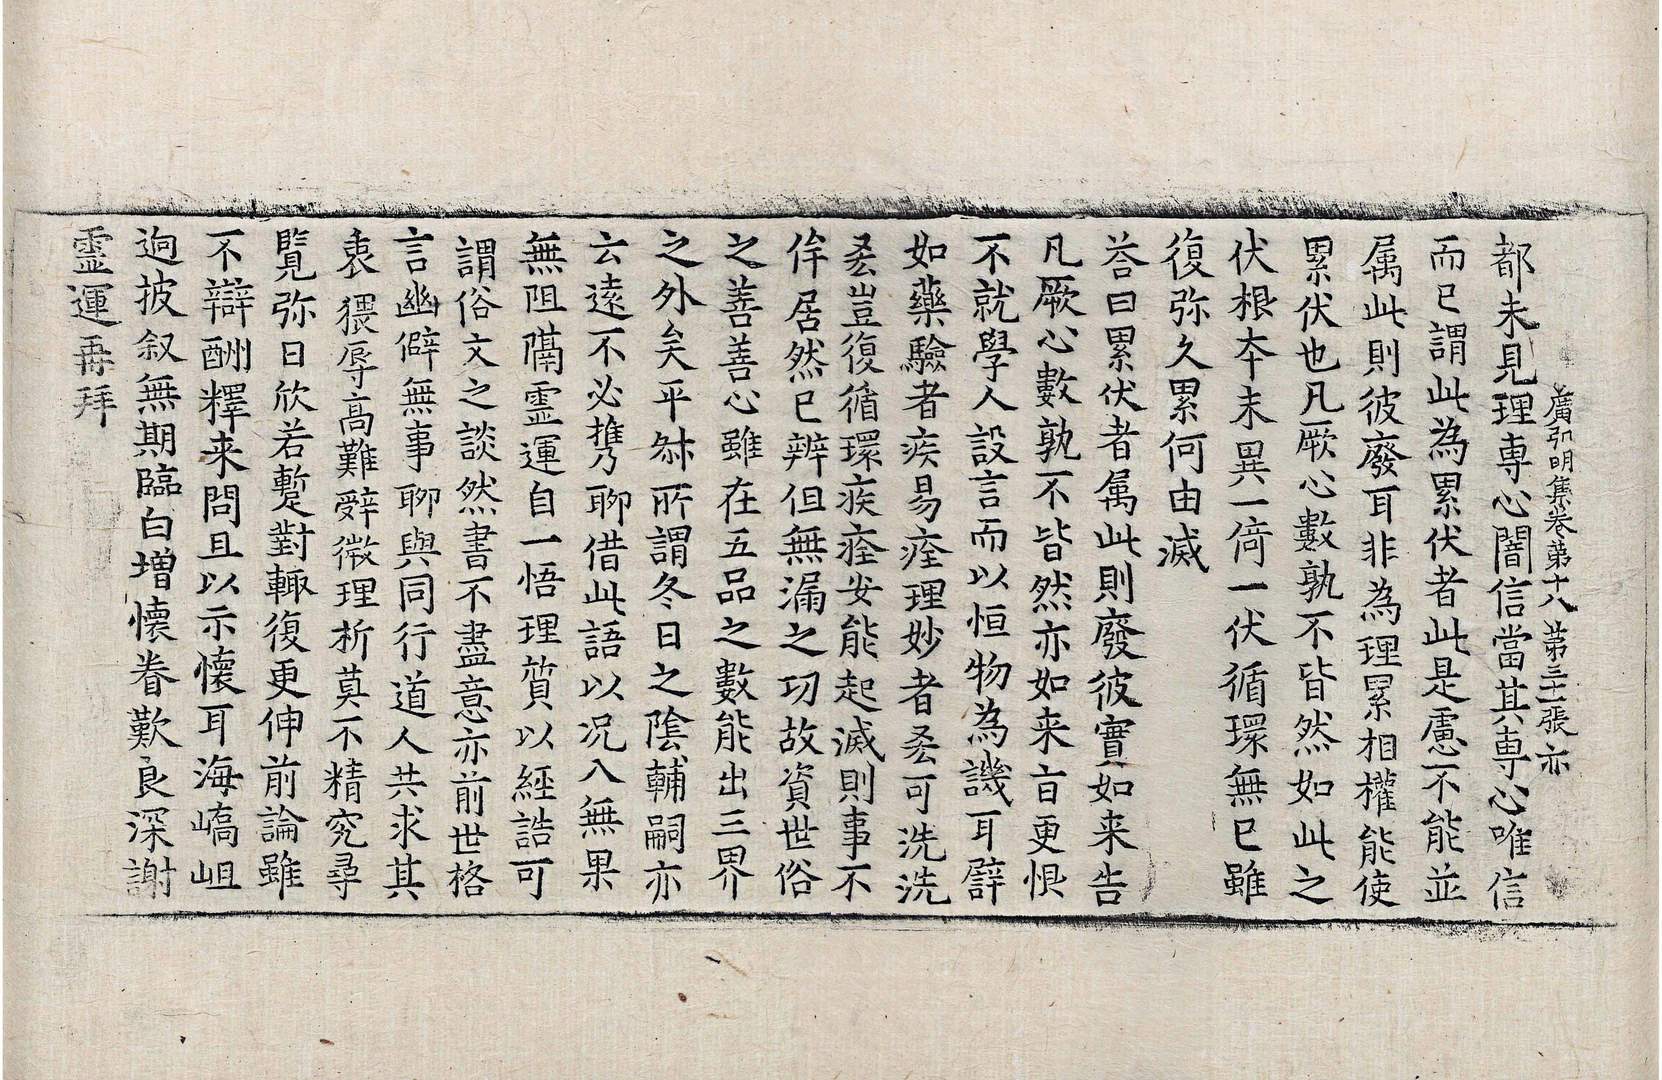 廣弘明集卷第十八 第三十一張 亦
都未見理專心闇信當其專心唯信
而已謂此為累伏者此是慮不能並
属此則彼廢耳非為理累相權能使
累伏也凡厥心數孰不皆然如此之
伏根本未異一倚一伏循環無已雖
復弥久累何由滅
荅曰累伏者属此則廢彼實如来告
凡厥心數孰不皆然亦如来旨更恨
不就學人設言而以恒物為譏耳譬
如藥驗者疾易痊理妙者丞可洗洗
丞豈復循環疾痊安能起滅則事不
侔居然已辨但無漏之功故資世俗
之善善心雖在五品之數能出三界
之外矣平叔所謂冬日之陰輔嗣亦
云遠不必攜聊借此語以况入無果
無阻隔靈運自一悟理質以經誥可
謂俗文之談然書不盡意亦前世格
言幽僻無事聊與同行道人共求其
衷猥辱高難辤微理析莫不精究尋
覽弥日欣若蹔對輙復更伸前論雖
不辯酬釋来問且以示懷耳海嶠岨
逈披叙無期臨白増懷眷歎良深謝
靈運再拜